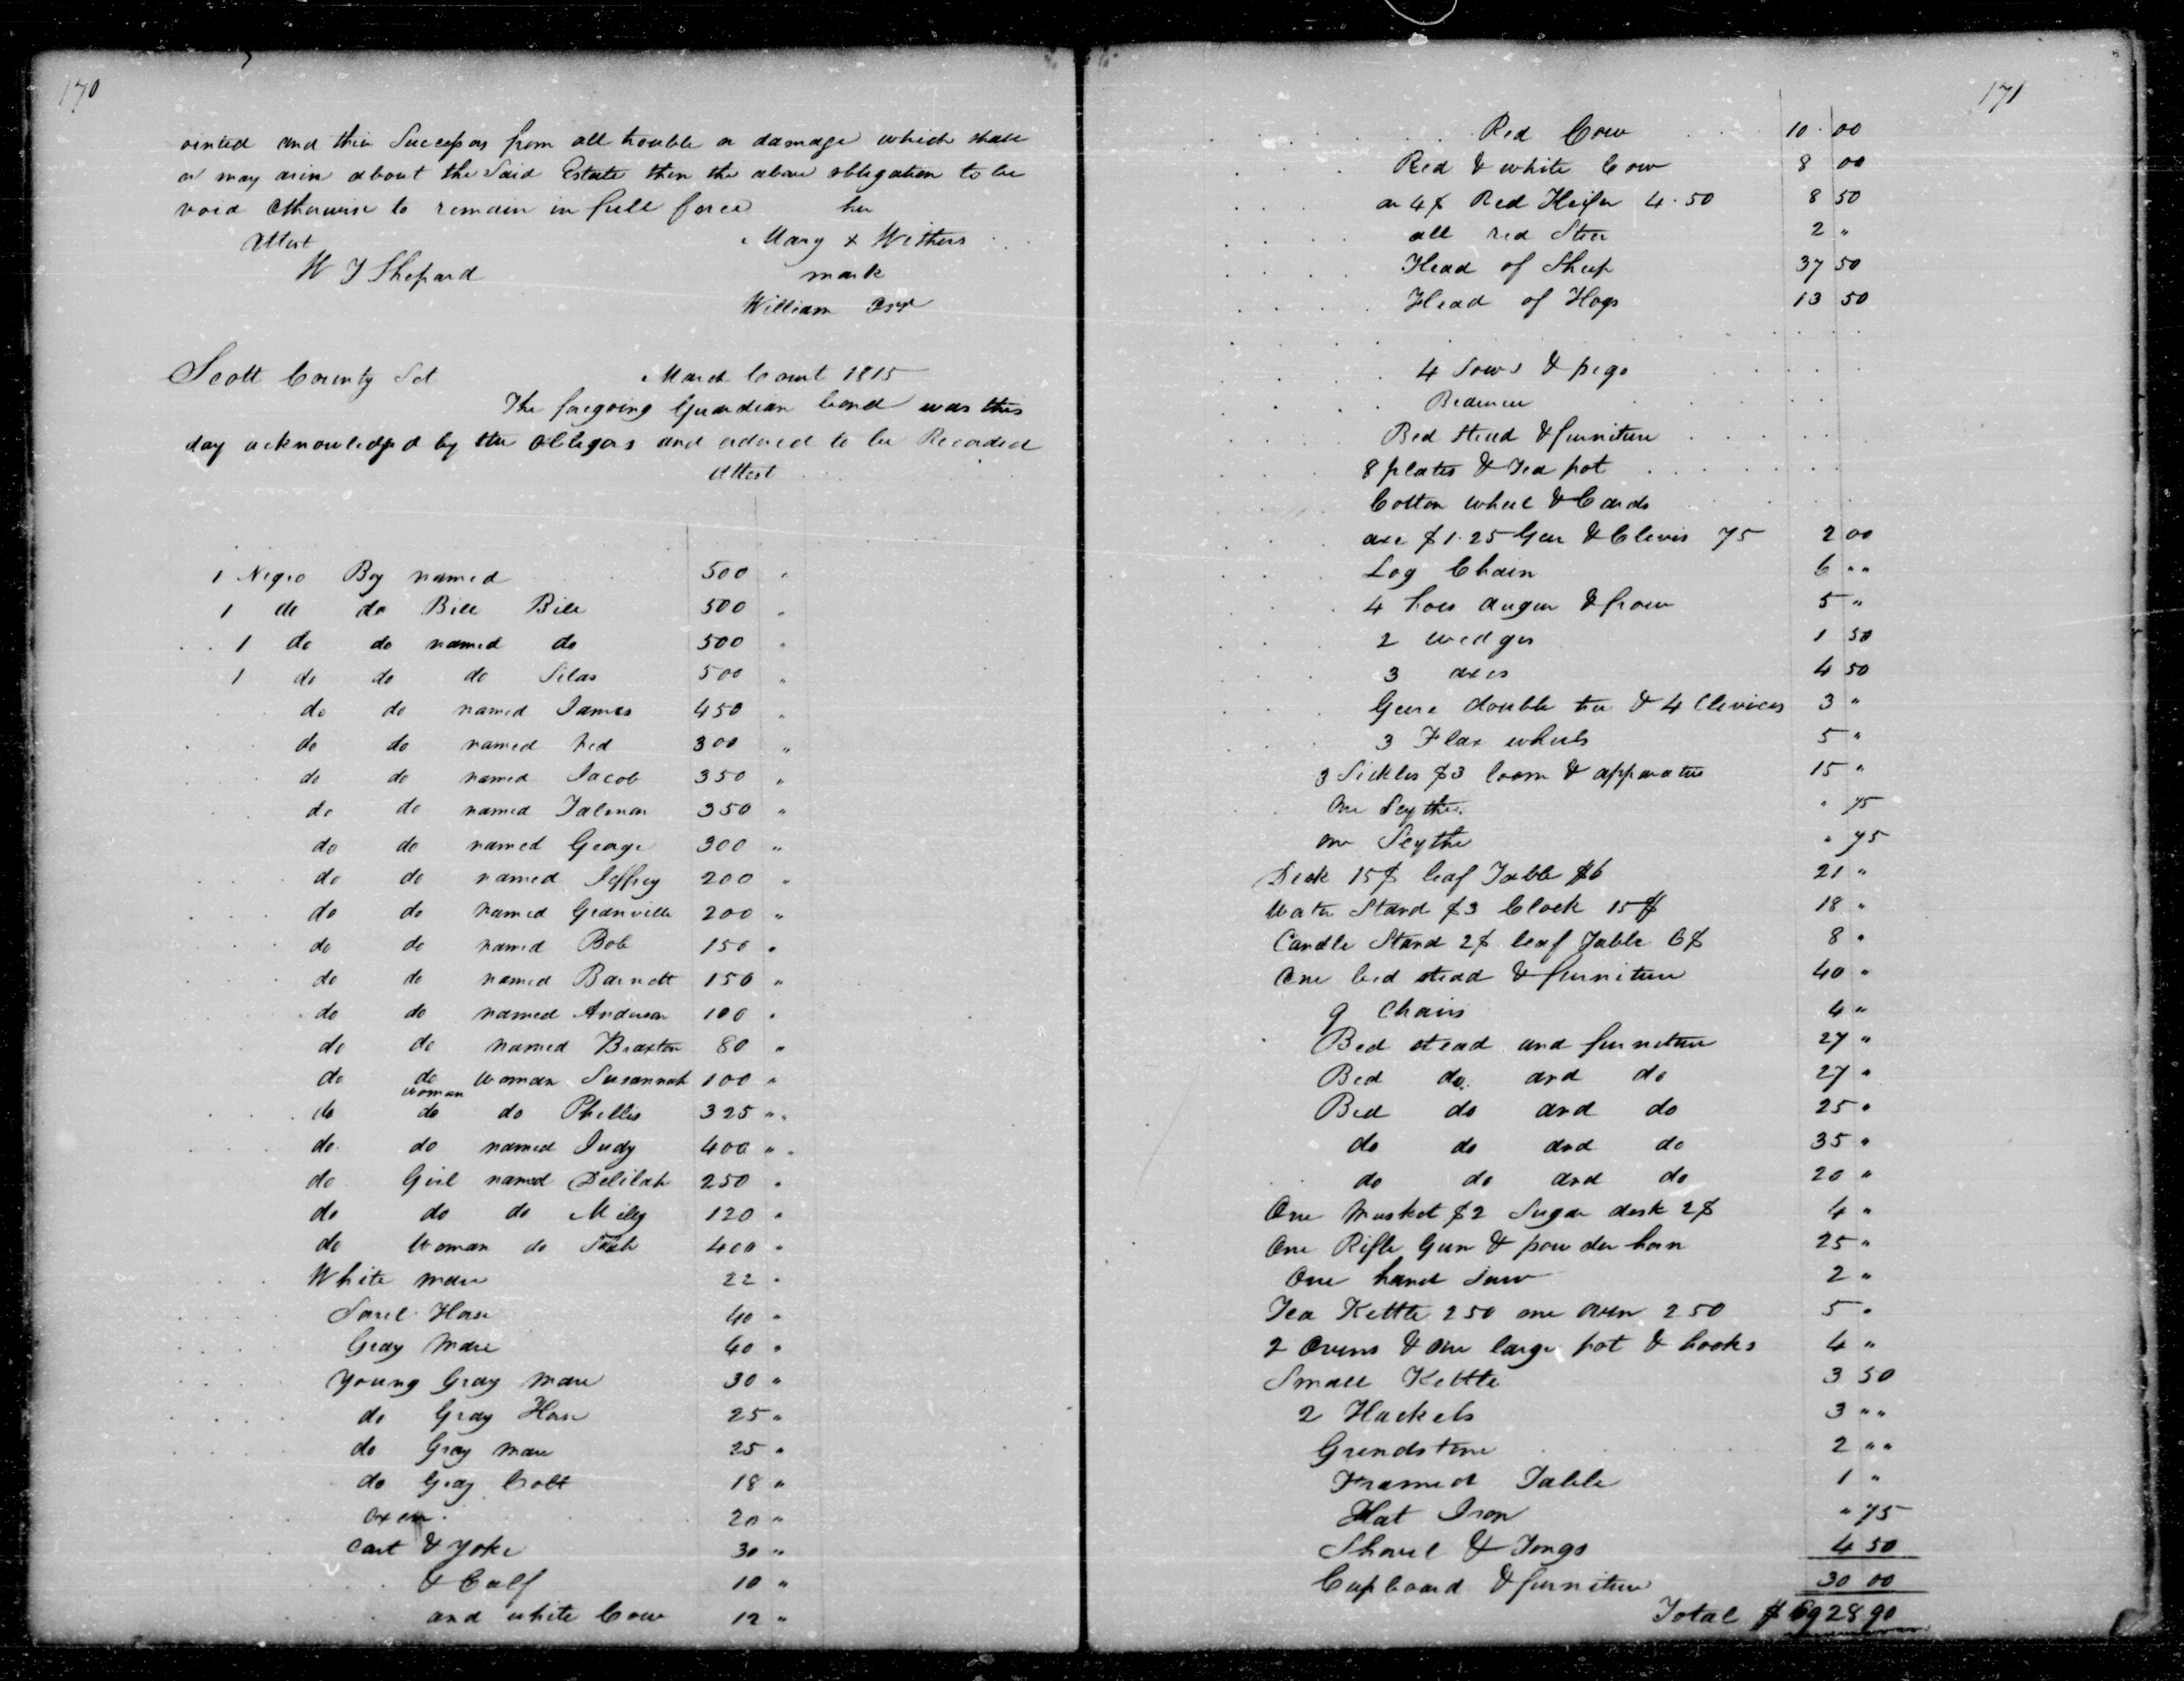 170
ointed and their Successors from all trouble or damage which shall
or may arise about the Said Estate then the above obligation to be
void Otherwise to remain in full force her
Attest Mary x Withers
W J Shepard mark
William Orr
Scott County Sct March Court 1815
The foregoing Guardian bond was this
day acknowledged by the Obligors and ordered to be Recorded
Attest
1 Negro Boy named 500 "
1 do do Bill Bill 500 "
1 do do named do 500 "
1 do do do Silas 500 "
do do named James 450 "
do do named Ned 300 "
do do named Jacob 350 "
do do named Talman 350 "
do do named George 300 "
do do named Jeffrey 200 "
do do named Granville 200 "
do do named Bob 150 "
do do named Barnett 150 "
do do named Anderson 100 "
do do named Braxton 80 "
do do woman Susannah 100 "
woman
do do do Phillis 325 "
do do named Judy 400 "
do Girl named Delilah 250 "
do do do Milly 120 "
do Woman do 400 "
White mare 22 "
Sorel Horse 40 "
Gray Mare 40 "
Young Gray Mare 30 "
do Gray Horse 25 "
do Gray mare 25 "
do Gray Colt 18 "
Oxen 20 "
Cart & Yoke 30 "
& Calf 10 "
and white Cow 12 "
171
Red Cow 10 00
Red & white Cow 8 00
or 4$ Red Heifer 4.50 8 50
all red Steer 2 "
Head of Sheep 37 50
Head of Hogs 13 50
4 Sows & pigs
Bed stead & furniture
8 plates & Tea pot
Cotton wheel & Cards
axe $1.25 Gear & Clevis 75 2 00
Log Chain 6 " "
4 hoes auger & frow 5 "
2 wedges 1 50
3 axes 4 50
Geers double tree & 4 Clevices 3 "
3 Flax wheels 5 "
3 Sickles $3 loom & apparatus 15 "
One Scythe " 75
one Scythe " 75
Desk 15$ leaf Table $6 21 "
Water Stand $3 Clock 15$ 18 "
Candle Stand 2$ leaf Table 6$ 8 "
One bed stead & furniture 40 "
9 Chairs 4 "
Bed stead and furniture 27 "
Bed do and do 27 "
Bed do and do 25 "
do do and do 35 "
do do and do 20 "
One Musket $2 Sugar desk 2$ 4 "
One Rifle Gun & powder horn 25 "
One hand Saw 2 "
Tea Kettle 2 50 one oven 2 50 5 "
2 Ovens & one large pot & hooks 4 "
Small Kettle 3 50
2 Hackels 3 " "
Grindstone 2 " "
Framed Table 1 "
Flat Iron " 75
Shovel & Tongs 4 50
Cupboard & furniture 30 00
Total $ 6928 90